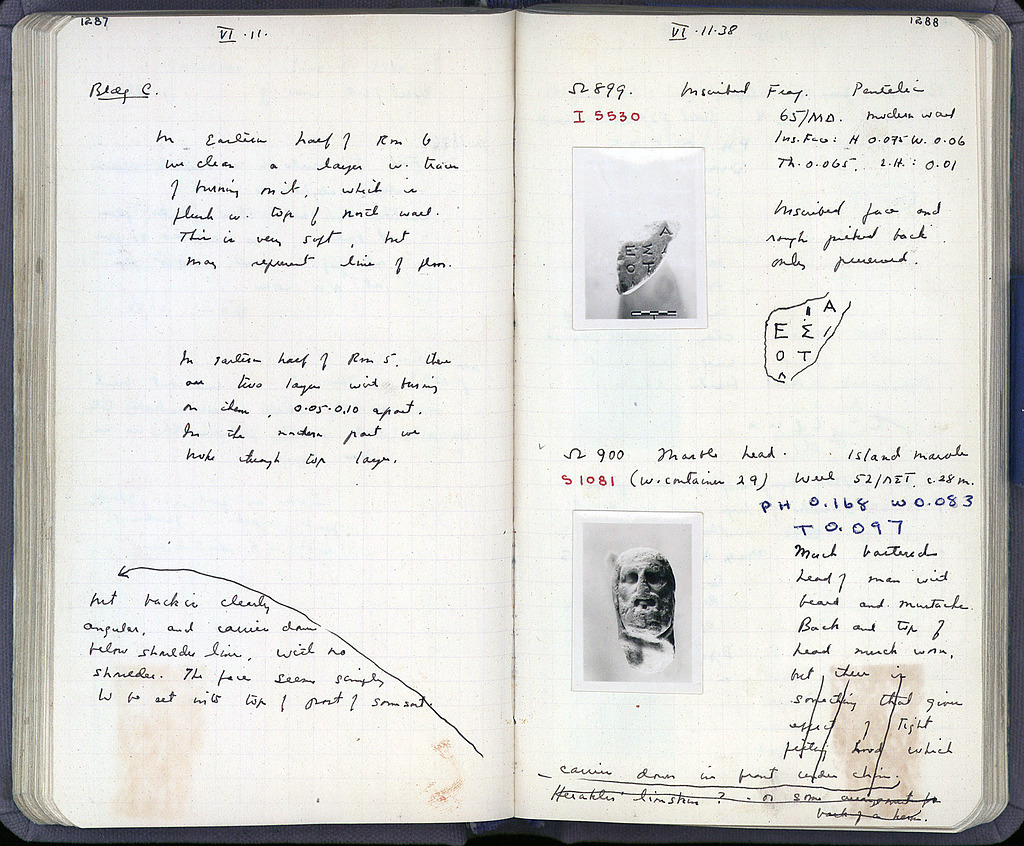 1287
VI ·11·
Bldg C.
In Eastern half of Rm 6
we clean a layer w. traces
of burning on it, which is
flush w. top of north wall.
This is very soft, but
may represent line of floor.
In eastern half of Rm 5, there
are two layers with burning
on them, 0.05-0.10 apart.
In the northern part we
broke through top layer.
but back is clearly
angular, and carries down
below shoulder line, with no
shoulder. The face seems simply
to be set into top of post of some sort.
1288
VI ·11·38
Ω 899. Inscribed Frag. Pentelic
I 5530 65/ΜΔ. modern wall
Ins. Face: H 0.075 W. 0.06
Th. 0.065, L.H.: 0.01
Inscribed face and
rough picked back
only preserved.
Α
Ε Σ
Ο Τ
Α
Ε Σ Ι
Ο Τ
Λ
Ω 900 Marble head. Island marble
S 1081 (w. container 29) Well 52/ c. 28 m.
PH 0.168 W 0.083
T 0.097
Much battered
head of man with
beard and mustache.
Back and top of
head much worn,
but there is
something that gives
effect of tight
fitting hood which
carries down in front under chin.
Herakles' lionskin? - or some arrangement for
back of a herm.